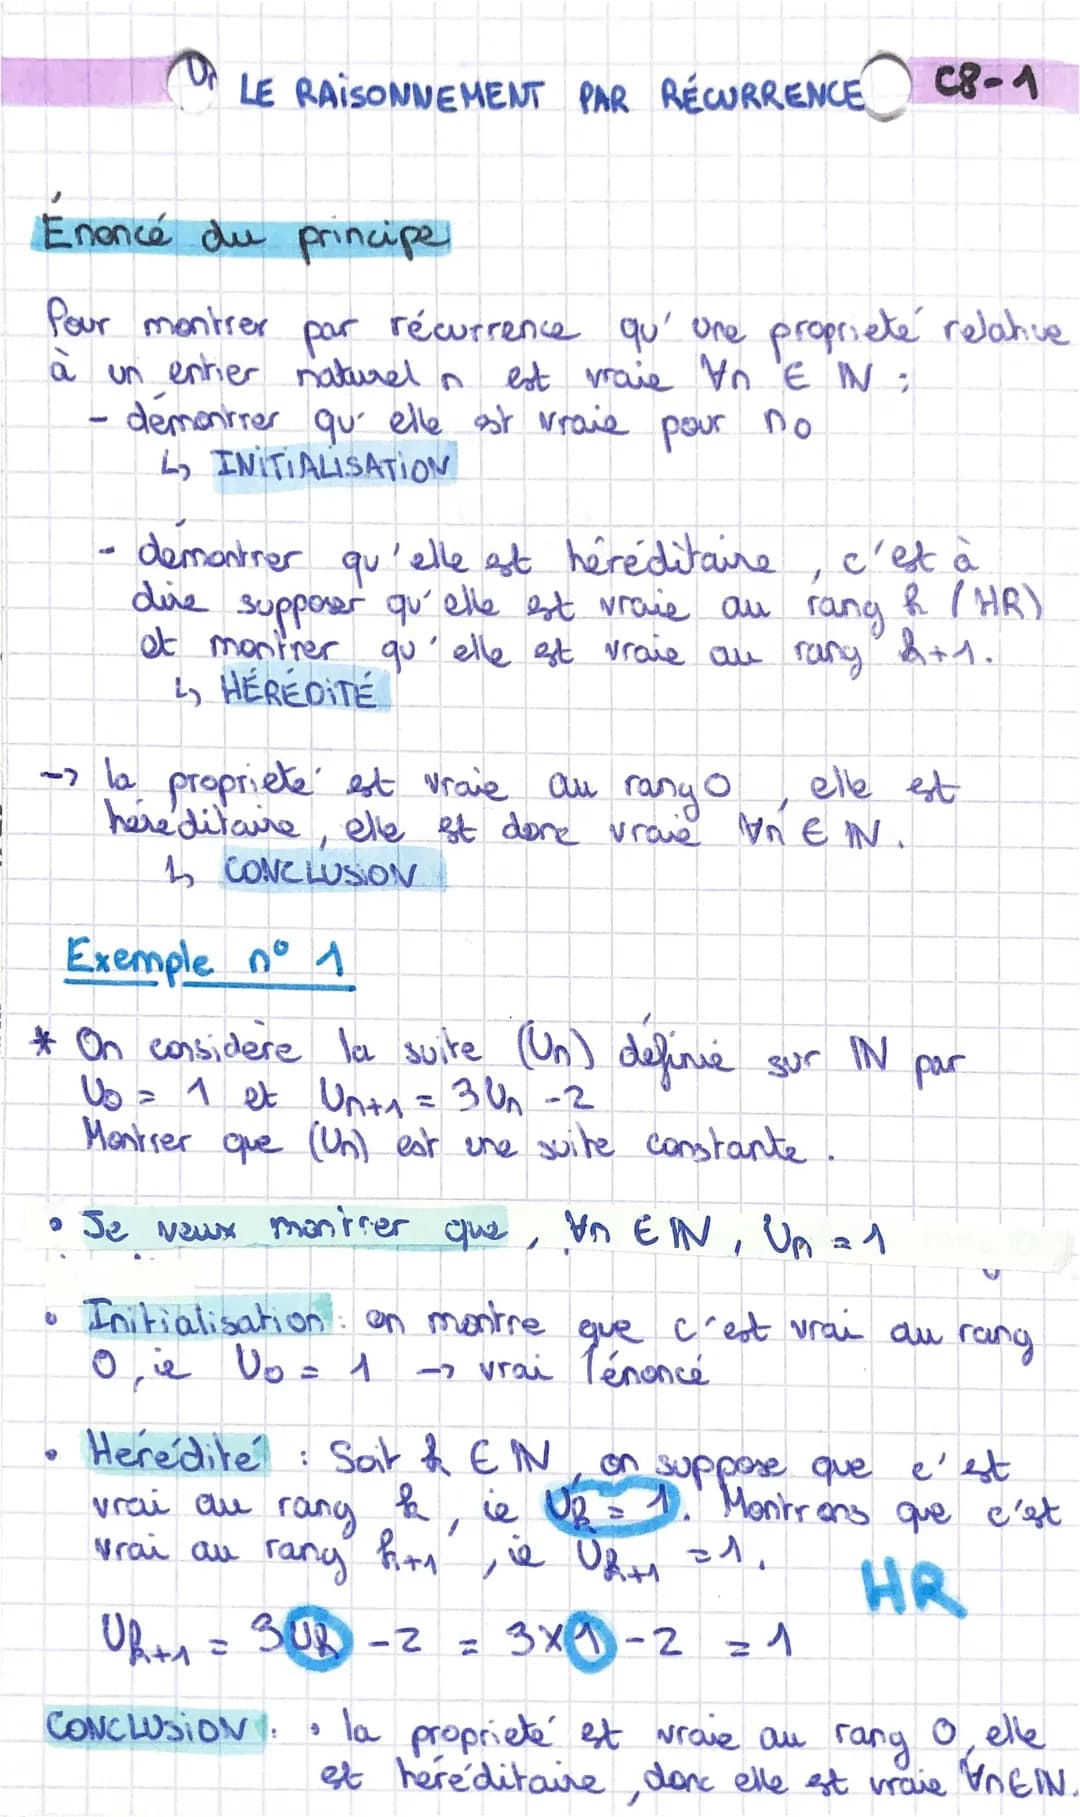 LE RAISONNEMENT PAR RÉCURRENCE C8-1
Énoncé du principe
Pour montrer par récurrence qu'une proprieté relative
à un entier naturel n est vraie ∀n ∈ ℕ :
- démontrer qu'elle est vraie pour n0
↳ INITIALISATION
- démontrer qu'elle est héréditaire, c'est à
dire supposer qu'elle est vraie au rang k (HR)
et montrer qu'elle est vraie au rang k+1.
↳ HÉRÉDITÉ
-> la proprieté est vraie au rang 0, elle est
héréditaire, elle est donc vraie ∀n ∈ ℕ.
↳ CONCLUSION
Exemple n° 1
* On considère la suite (Un) définie sur ℕ par
U0 = 1 et Un+1 = 3Un - 2
Montrer que (Un) est une suite constante.
• Je veux montrer que, ∀n ∈ ℕ, Un = 1
• Initialisation : on montre que c'est vrai au rang
0, ie U0 = 1 -> vrai l'énoncé
• Herédité : Soit k ∈ ℕ, on suppose que c'est
vrai au rang k, ie Uk = 1. Montrons que c'est
vrai au rang k+1, ie Uk+1 = 1.
HR
Uk+1 = 3Uk - 2 = 3×1 - 2 = 1
CONCLUSION : • la proprieté est vraie au rang 0, elle
est héréditaire, donc elle est vraie ∀n ∈ ℕ.